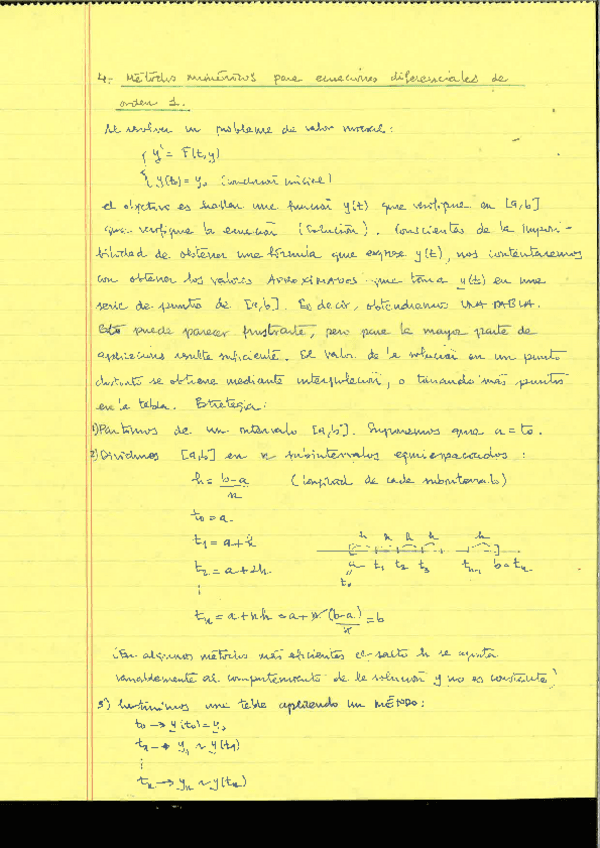 4.- Métodos numéricos para ecuaciones diferenciales de
orden 1.
Se resolver un problema de valor inicial:
{ y' = F(t,y)
{ y(t0) = y0 (condición inicial)
el objetivo es hallar una función y(t) que verifique en [a,b]
que verifique la ecuación (solución). Conscientes de la imposi-
bilidad de obtener una fórmula que exprese y(t), nos contentaremos
con obtener los valores APROXIMADOS que toma y(t) en una
serie de puntos de [a,b]. Es decir, obtendremos UNA TABLA.
Esto puede parecer frustrante, pero para la mayor parte de
aplicaciones resulta suficiente. El valor de la solución en un punto
distinto se obtiene mediante interpolación, o tomando más puntos
en la tabla. Estrategia:
1) Partimos de un intervalo [a,b]. Suponemos que a = t0.
2) Dividimos [a,b] en n subintervalos equiespaciados:
h = (b-a)/n (longitud de cada subintervalo)
t0 = a.
t1 = a + h
t2 = a + 2h
⋮
tn = a + nh = a + n (b-a)/n = b
h h h h h
a t1 t2 t3 tn-1 b = tn
t0
(En algunos métodos más eficientes el salto h se ajusta
variablemente al comportamiento de la solución y no es constante)
3) Construimos una tabla aplicando un MÉTODO:
t0 → y(t0) = y0
t1 → y1 ~ y(t1)
⋮
tn → yn ~ y(tn)